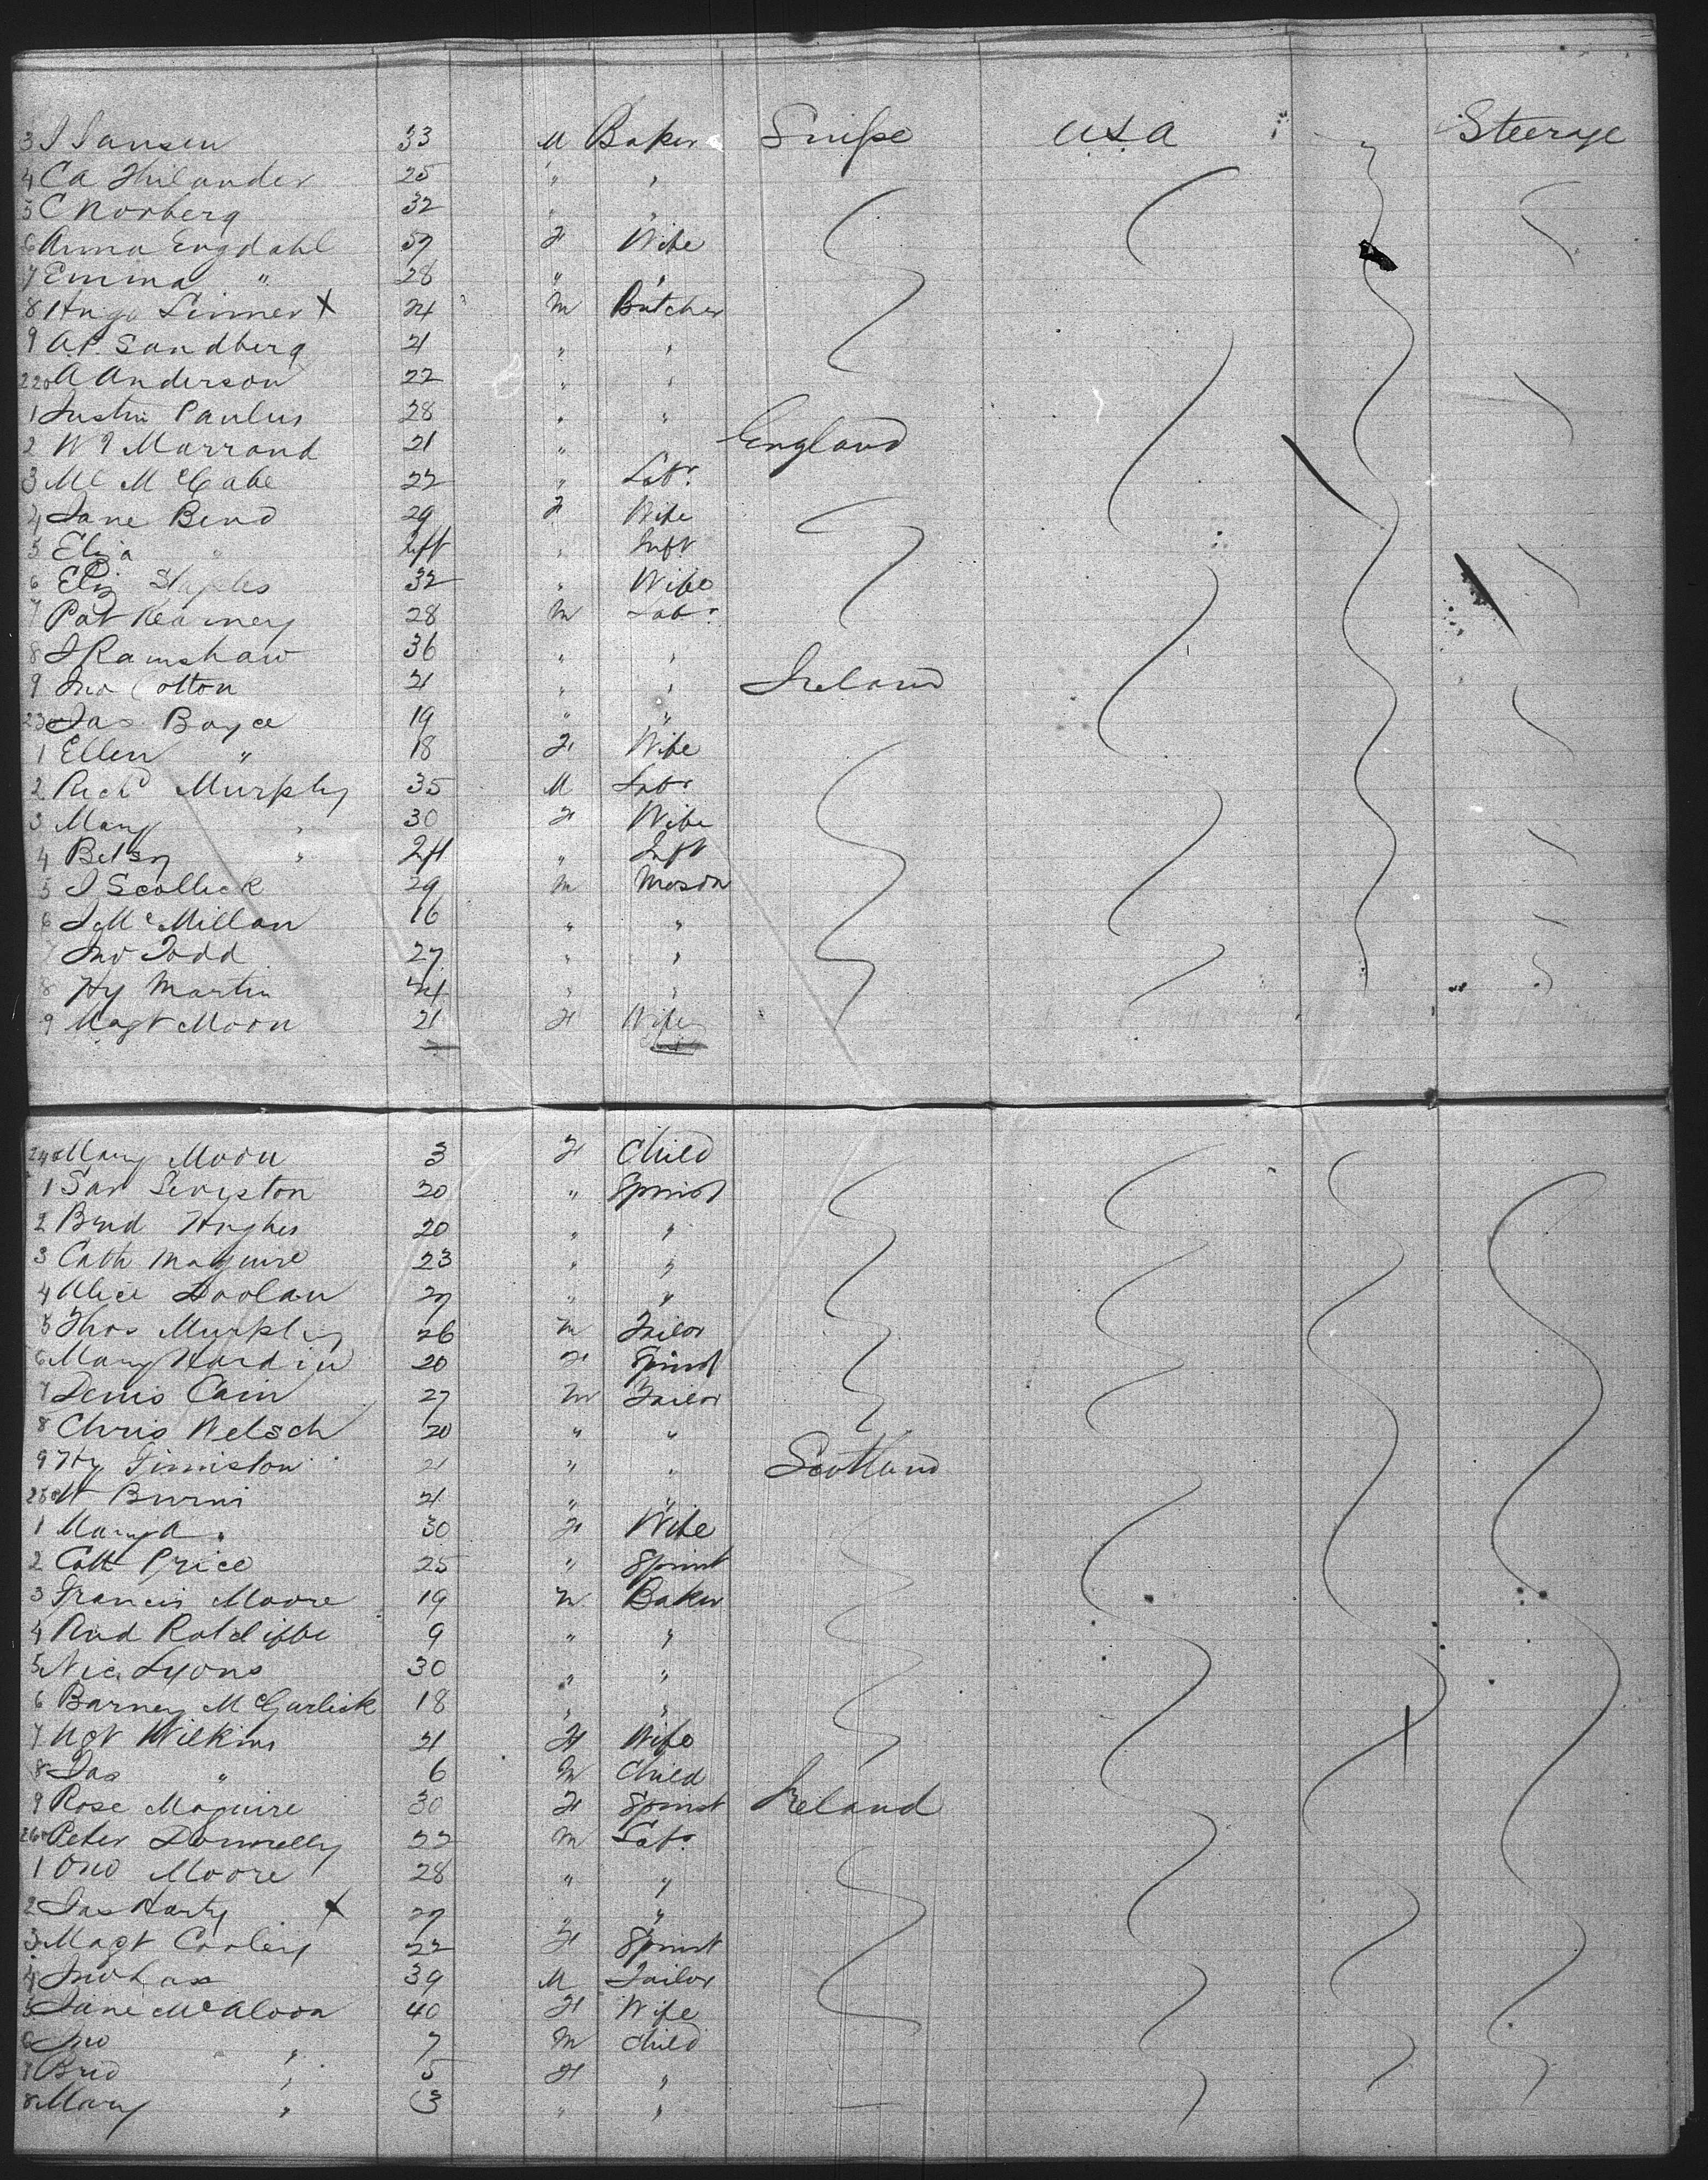 3 J Jansen 33 M Baker Swiße USA Steerage
4 CA Thilander 25 " "
5 C Norberg 32 " "
6 Anna Engdahl 57 F Wife
7 Emma " 28 " "
8 Hugo Linner X 24 M Butcher
9 A.P. Sandberg 21 " "
220 A Anderson 22 " "
1 Justin Paulus 28 " "
2 W J Marrand 21 " England
3 Ml McCabe 22 " Labr
4 Jane Bend 29 F Wife
5 Eliza " Inft
6 Eliz Staples 32 " Wife
7 Pat Kearney 28 M Labr
8 J Ramshaw 36 " "
9 Jno Cotton 21 " " Ireland
230 Jas Boyce 19 " "
1 Ellen " 18 F Wife
2 Richd Murphy 35 M Labr
3 Mary " 30 F Wife
4 Betsy " " Inft
5 J Scollick 29 M Mason
6 J McMillan 16 " "
7 Jno Todd 27 " "
8 Hy Martin " "
9 Magt Moon 21 F Wife
240 Mary Moon 3 F Child
1 Sar Levyston 20 " Spinst
2 Brid Hughes 20 " "
3 Cath Maguire 23 " "
4 Alice Doolan 27 " "
5 Thos Murphy 26 M Tailor
6 Mary Hardin 20 F Spinst
7 Denis Cain 27 M Tailor
8 Chris Welsch 20 " "
9 Hy Finniston 21 " " Scotland
250 Burns 21 " "
1 Mary A " 30 F Wife
2 Cath Price 25 " Spinst
3 Francis Moore 19 M Baker
4 Ratcliffe 9 " "
5 Nic Lyons 30 " "
6 Barney McGurlick 18 " "
7 Mgt Wilkins 21 F Wife
8 Jas " 6 M Child
9 Rose Maguire 30 F Spinst Ireland
260 Peter Donnelly 22 M Labr
1 Owd Moore 28 " "
2 Jas Harty X 27 " "
3 Magt Cooley 22 F Spinst
4 Jno 39 M Tailor
5 Jane McAloon 40 F Wife
6 Jno " 7 M Child
7 Brid " 5 F "
8 Mary " 3 " "